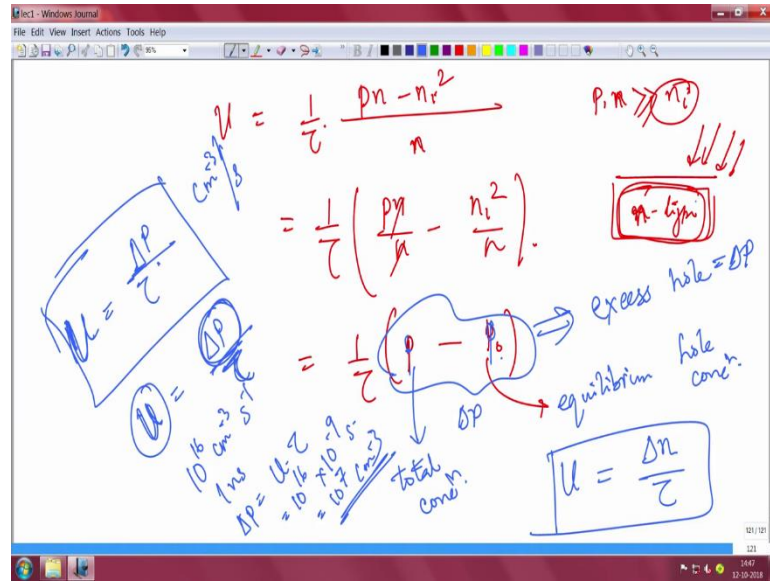 lec1 - Windows Journal
File Edit View Insert Actions Tools Help
95%
U = 1/τ · (pn - ni²)/n
p, n ≫ ni
cm⁻³/s
= 1/τ (pn/n - ni²/n).
n-type
U = Δp/τ
= 1/τ (p - p₀) ⇒ excess hole = Δp
Δp
equilibrium hole concn.
total concn.
U = Δp/τ
10¹⁶ cm⁻³ s⁻¹
1ns
Δp = U·τ
= 10¹⁶ × 10⁻⁹ s
= 10⁷ cm⁻³
U = Δn/τ
121/121
121
14:47
12-10-2018